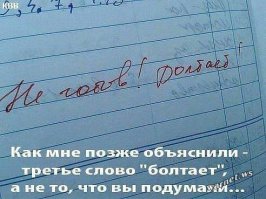 КВН
Не готов! Болтает!
Как мне позже объяснили -
третье слово "болтает",
а не то, что вы подумали...